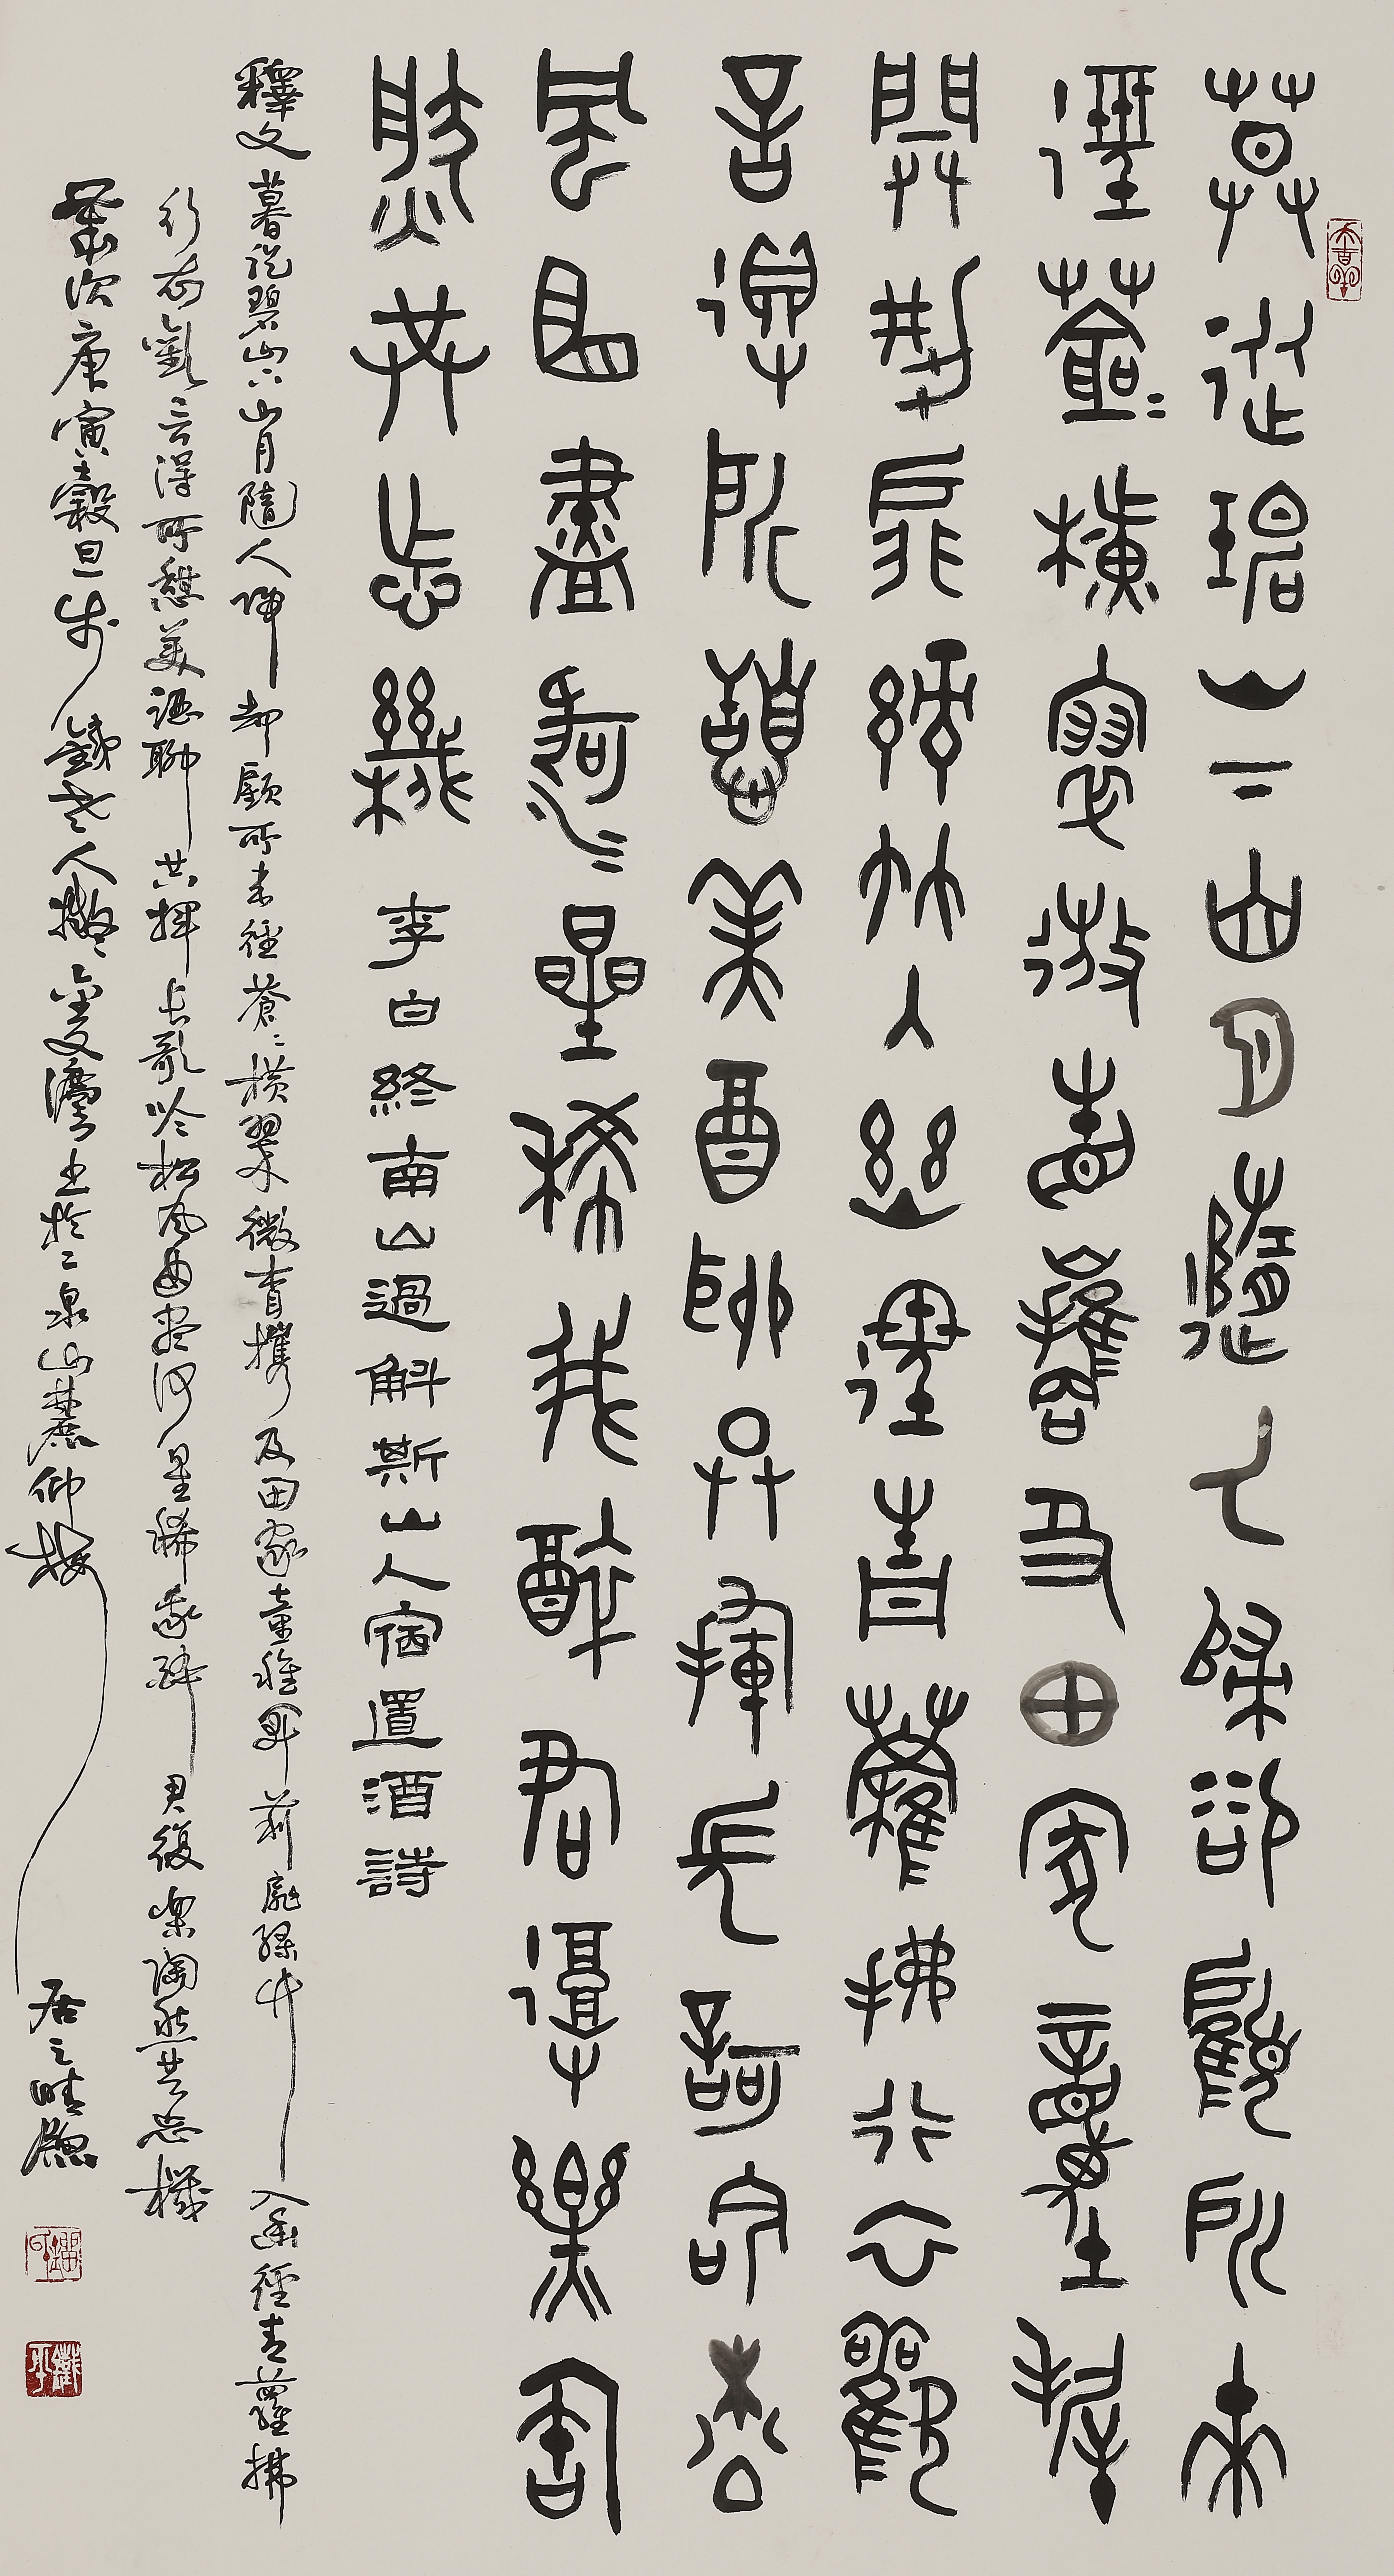 暮從碧山下山月隨人歸卻顧所來
徑蒼=橫翠微相攜及田家童稚
開荊扉綠竹入幽徑青蘿拂行衣歡
言得所憩美酒聊共揮長歌吟松
風曲盡河=星稀我醉君復樂陶
然共忘機 李白終南山過斛斯山人宿置酒詩
釋文 暮從碧山下山月隨人歸却顧所來徑蒼=橫翠微相攜及田家童稚開荊扉綠竹入幽徑青蘿拂
行衣歡言得所憩美酒聊共揮長歌吟松風曲盡河星稀我醉君復樂陶然共忘機
歲次庚寅穀旦 錢 人撰 書於二泉山麓仰梅
居之晴